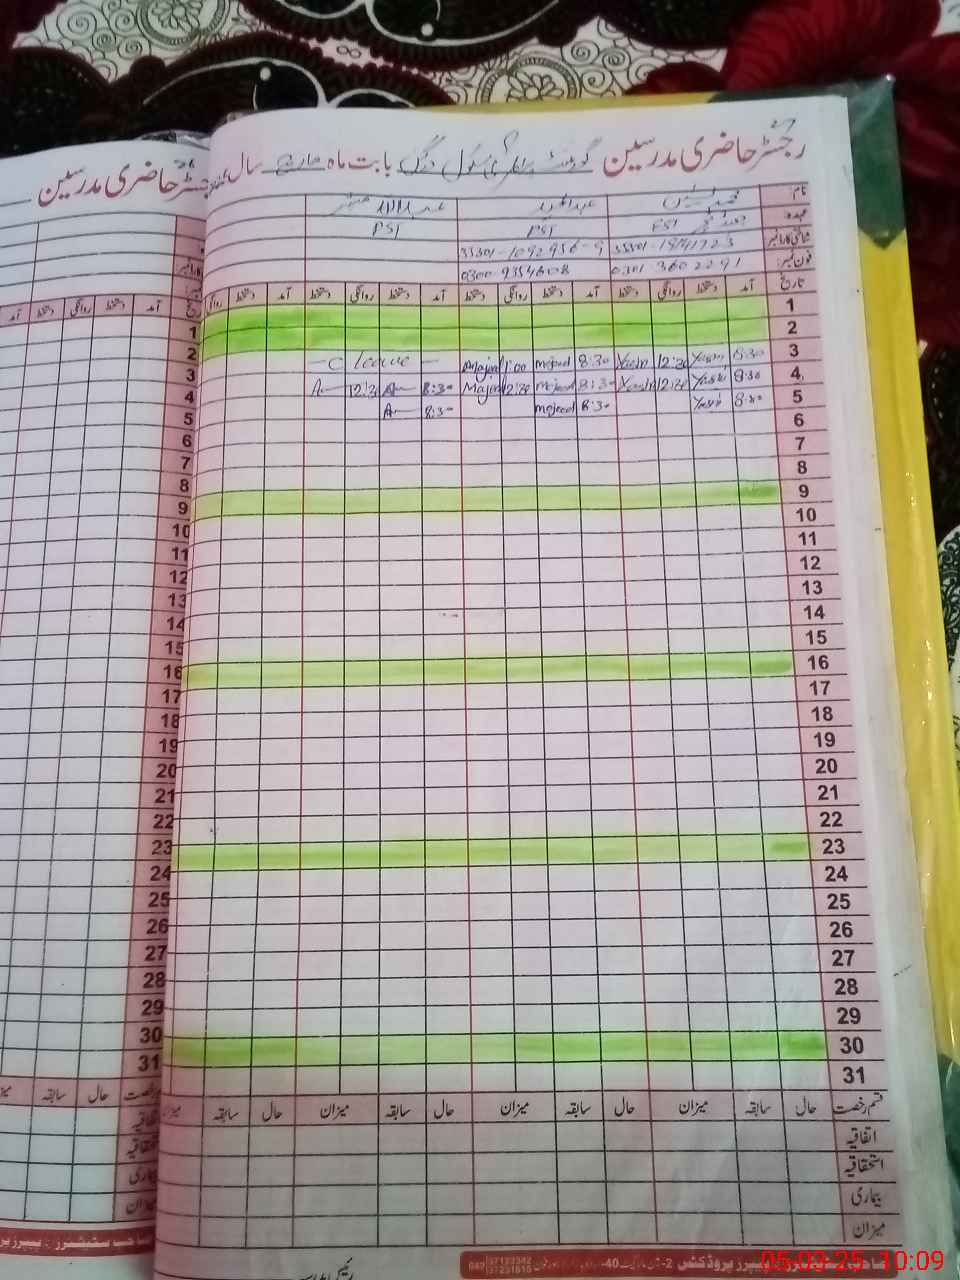 رجسٹر حاضری مدرسین گورنمنٹ پرائمری سکول بابت ماہ مارچ سال
27
نام محمد یٰسین عبدالمجید
عہدہ EST PST PST
شناختی کارڈ نمبر 35301-1092956-9
فون نمبر 0301 3602291 0300 9354608
تاریخ آمد دستخط روانگی دستخط آمد دستخط روانگی دستخط آمد دستخط روانگی دستخط آمد دستخط
1
2
3 8:30 Yasin 12:30 Yasin 8:30 majeed 1:00 Majeed – C leave –
4 8:30 Yasin 12:30 Yasin 8:30 majeed 12:30 Majeed 8:30 12:30
5 8:30 Yasin 8:30 majeed 8:30
6
7
8
9
10
11
12
13
14
15
16
17
18
19
20
21
22
23
24
25
26
27
28
29
30
31
قسم رخصت حال سابقہ میزان حال سابقہ میزان حال سابقہ میزان حال سابقہ میزان
اتفاقیہ
استحقاقیہ
بیماری
میزان
رجسٹر حاضری مدرسین
26
آمد دستخط روانگی دستخط آمد
1
2
3
4
5
6
7
8
9
10
11
12
13
14
15
16
17
18
19
20
21
22
23
24
25
26
27
28
29
30
31
حال سابقہ
05-03-25 10:09